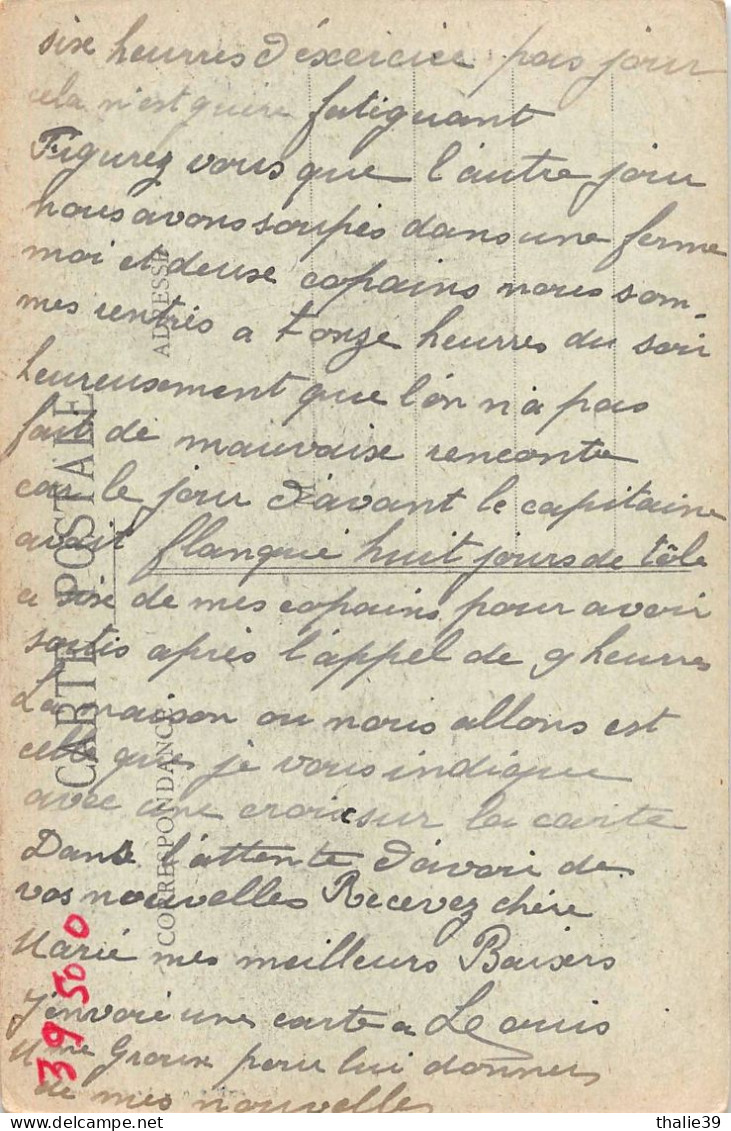 six heurres d'éxercice pas jour
cela n'est guire fatiguant
Figurez vous que l'autre jour
nous avons soupés dans une ferme
moi et deuse copains nous som-
mes rentrés a t'onze heurres du soir
heureusement que l'on n'a pas
fait de mauvaise renconte
car le jour d'avant le capitaine
avait flanqué huit jours de tôle
a six de mes copains pour avoir
sortis après l'appel de 9 heurres
La maison ou nous allons est
celle que je vous indique
avec une croix sur la carte
Dans l'attente d'avoir de
vos nouvelles Recevez chère
Marié mes meilleurs Baisers
J'envoie une carte a Louis
Mme Groux pour lui donner
de mes nouvelles
CARTE POSTALE
CORRESPONDANCE
ADRESSE
39500
thalie39